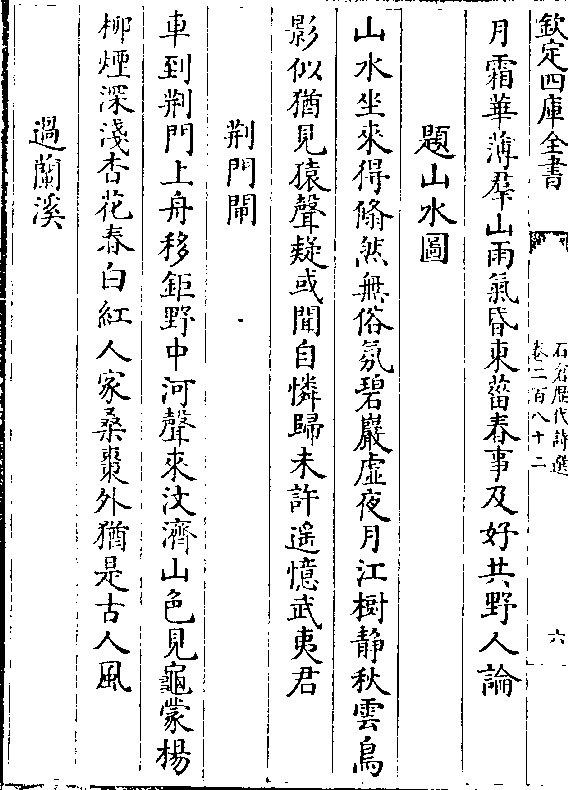 欽定四庫全書
石倉歷代詩選
卷二百八十二
六
月霜華薄羣山雨氣昏東菑春事及好共野人論
題山水圖
山水坐來得翛然無俗氛碧巖虛夜月江樹静秋雲鳥
影似猶見猿聲疑或聞自憐歸未許遥憶武夷君
荆門閘
車到荆門上舟移鉅野中河聲來汶濟山色見龜蒙楊
柳煙深淺杏花春白紅人家桑棗外猶是古人風
過蘭溪